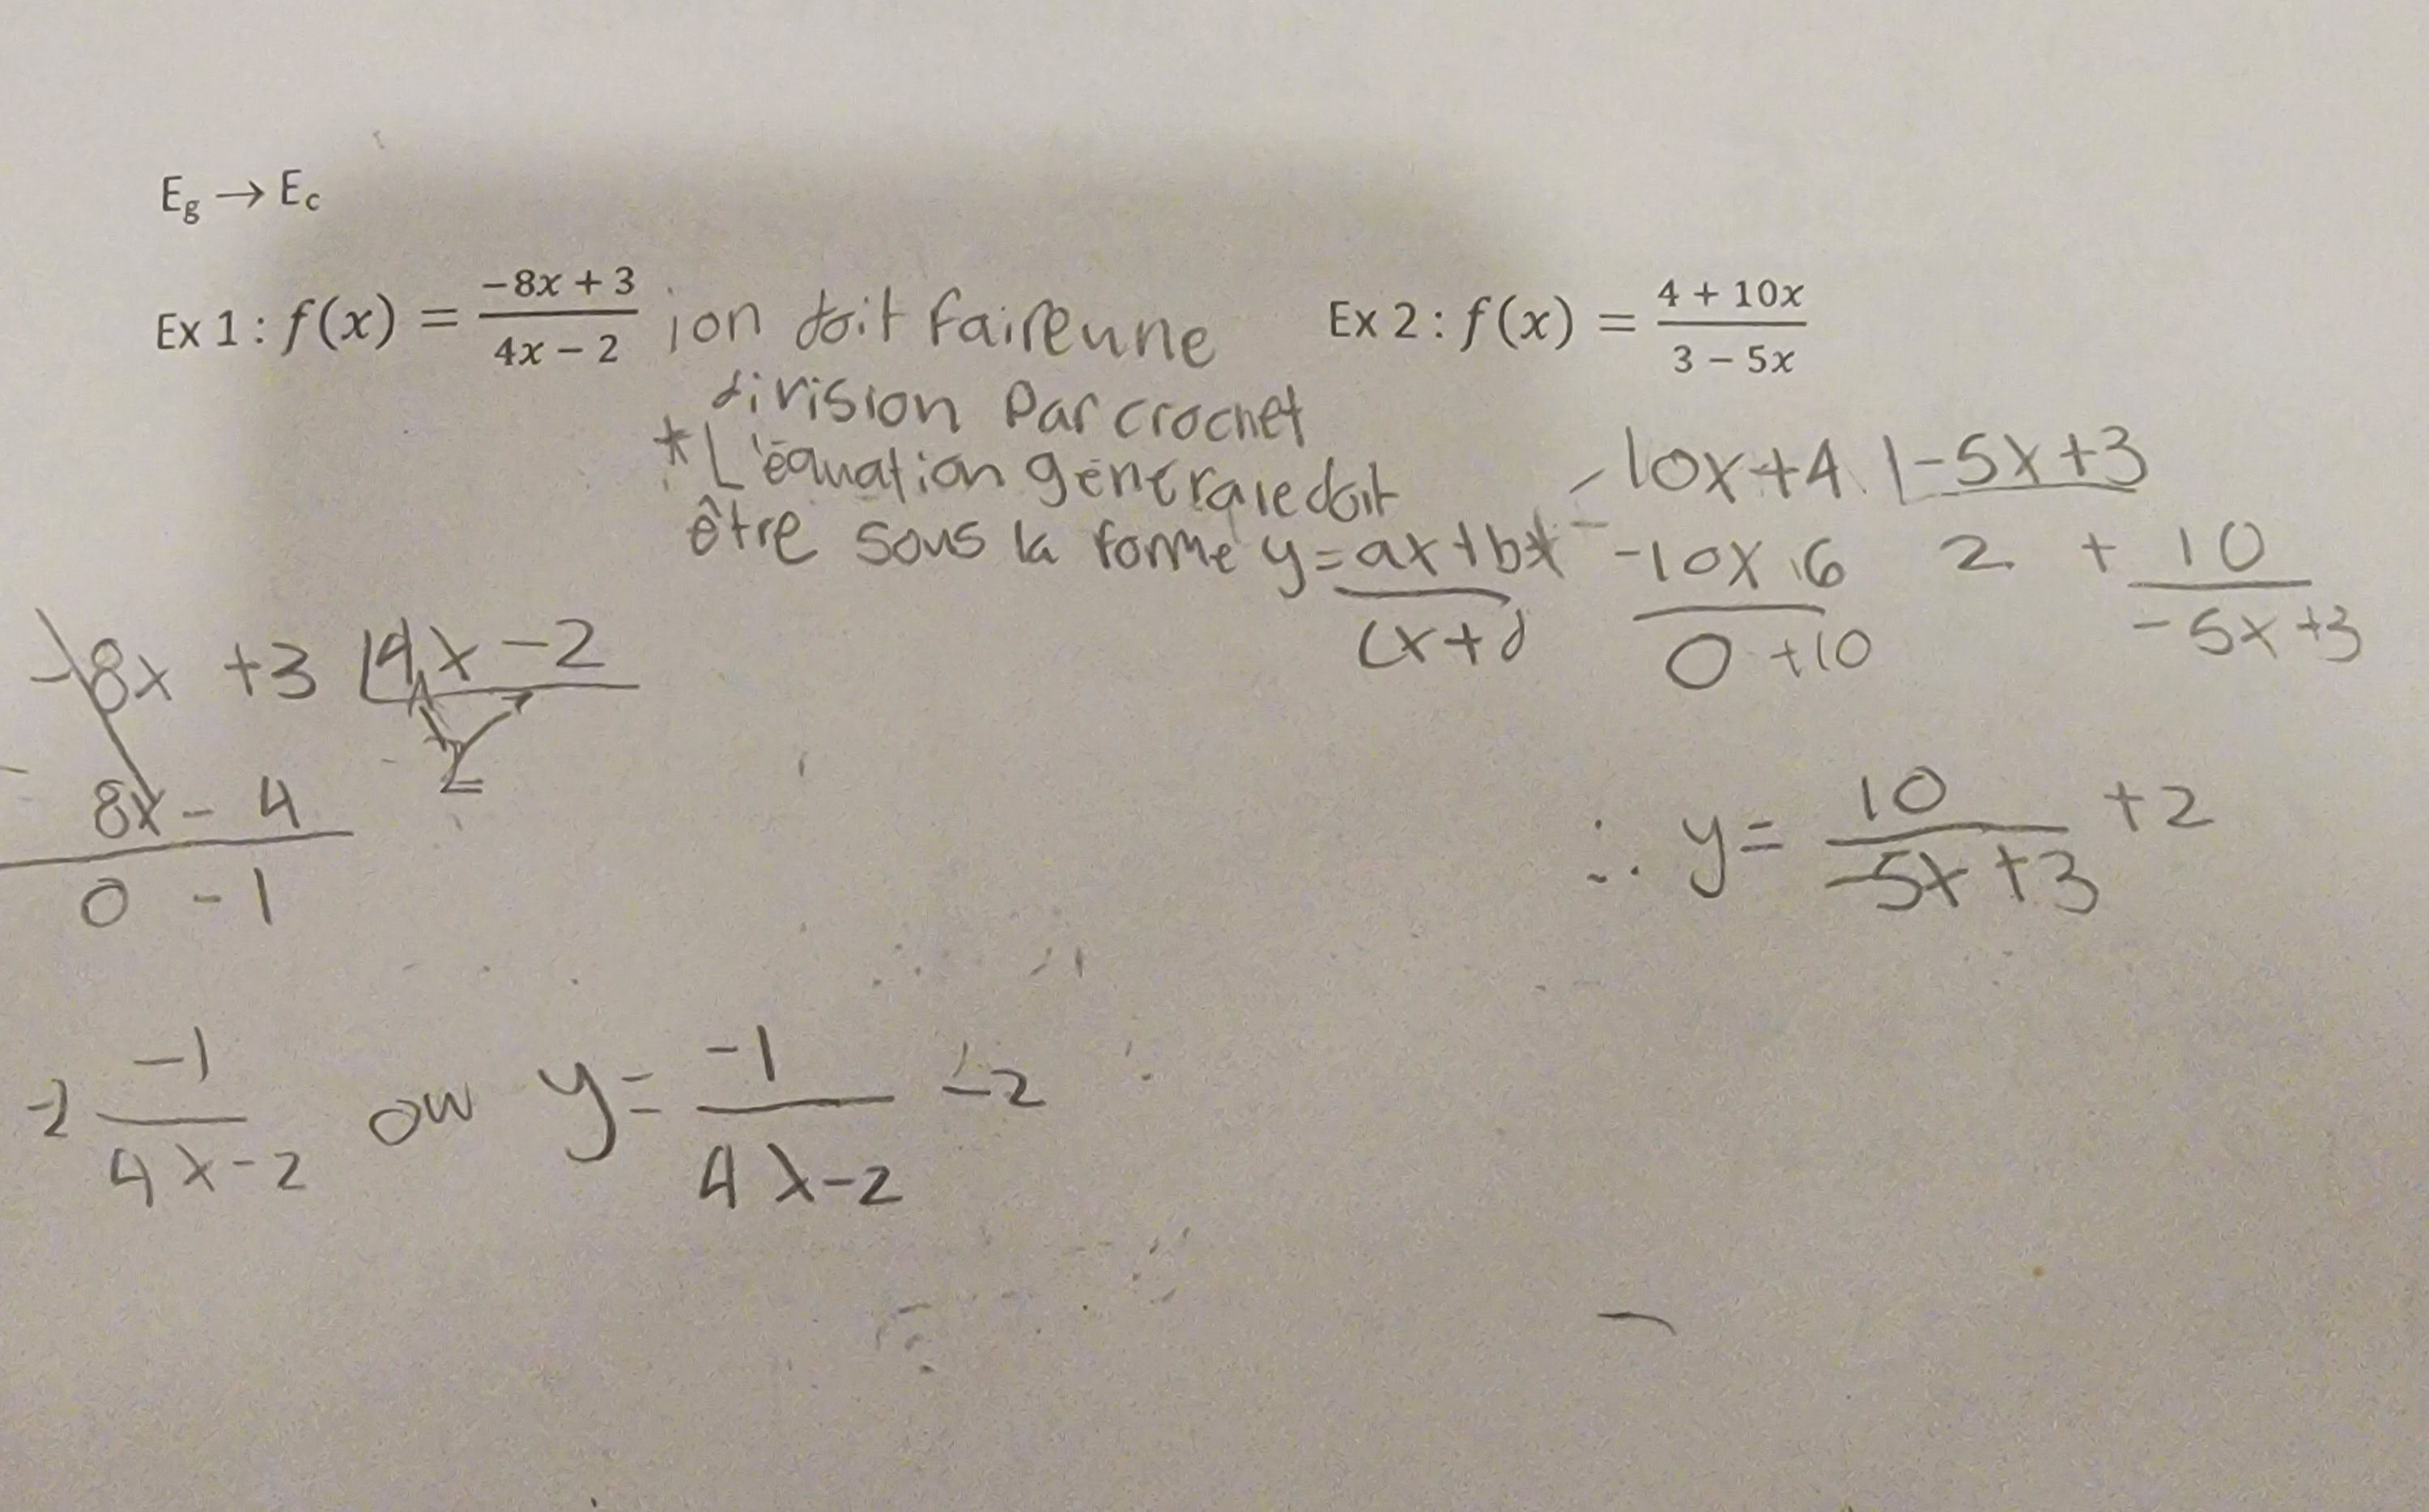 Eg → Ec
Ex 1 : f(x) = (-8x + 3)/(4x - 2) ; on doit faire une
division par crochet
* L'équation générale doit
être sous la forme y = (ax+b)/(cx+d) *
-8x +3 |4x -2
-2
- 8x - 4
0 -1
-2 -1/(4x-2) ou y = -1/(4x-2) -2
Ex 2 : f(x) = (4 + 10x)/(3 - 5x)
10x+4 |-5x+3
-10x 6 2 + 10/(-5x+3)
0 +10
∴ y = 10/(-5x+3) +2